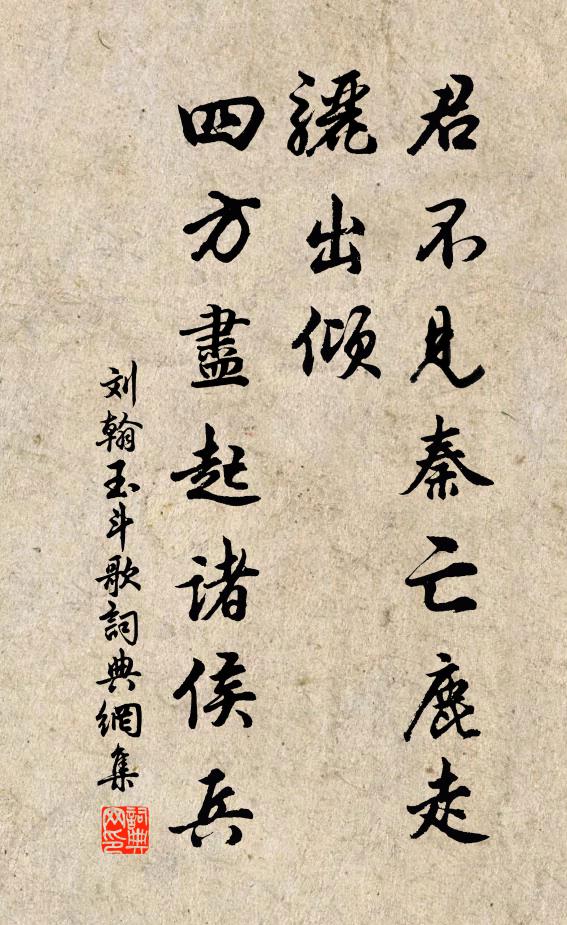 君不見秦亡鹿走
驪出傾
四方盡起諸侯兵
刘翰玉斗歌詞典網集
詞典网印